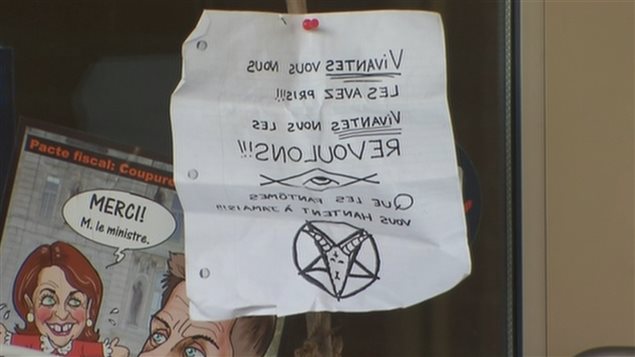 VIVANTES VOUS NOUS
LES AVEZ PRIS!!!
VIVANTES NOUS LES
REVOULONS!!!
QUE LES FANTÔMES
VOUS HANTENT À JAMAIS!!!
Pacte fiscal: Coupure
MERCI!
M. le ministre.